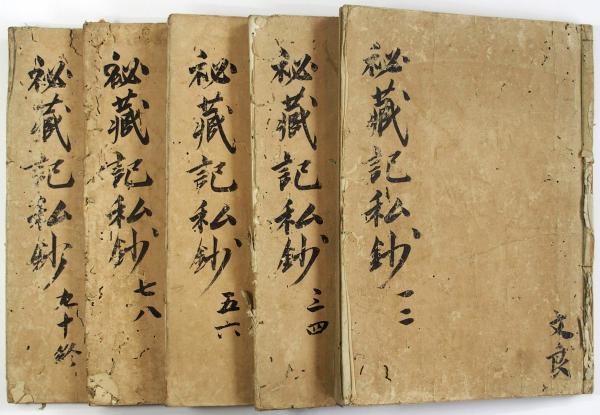 秘藏記私鈔 一二
文良
秘藏記私鈔 三四
秘藏記私鈔 五六
秘藏記私鈔 七八
秘藏記私鈔 九十終